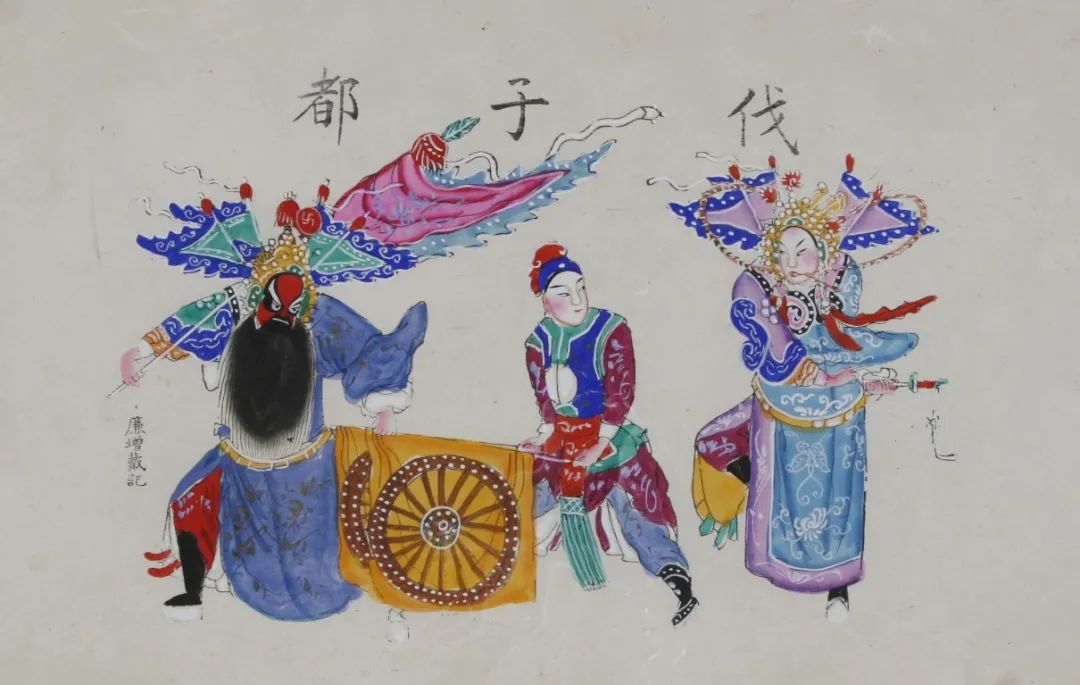 伐子都
廉增戴記